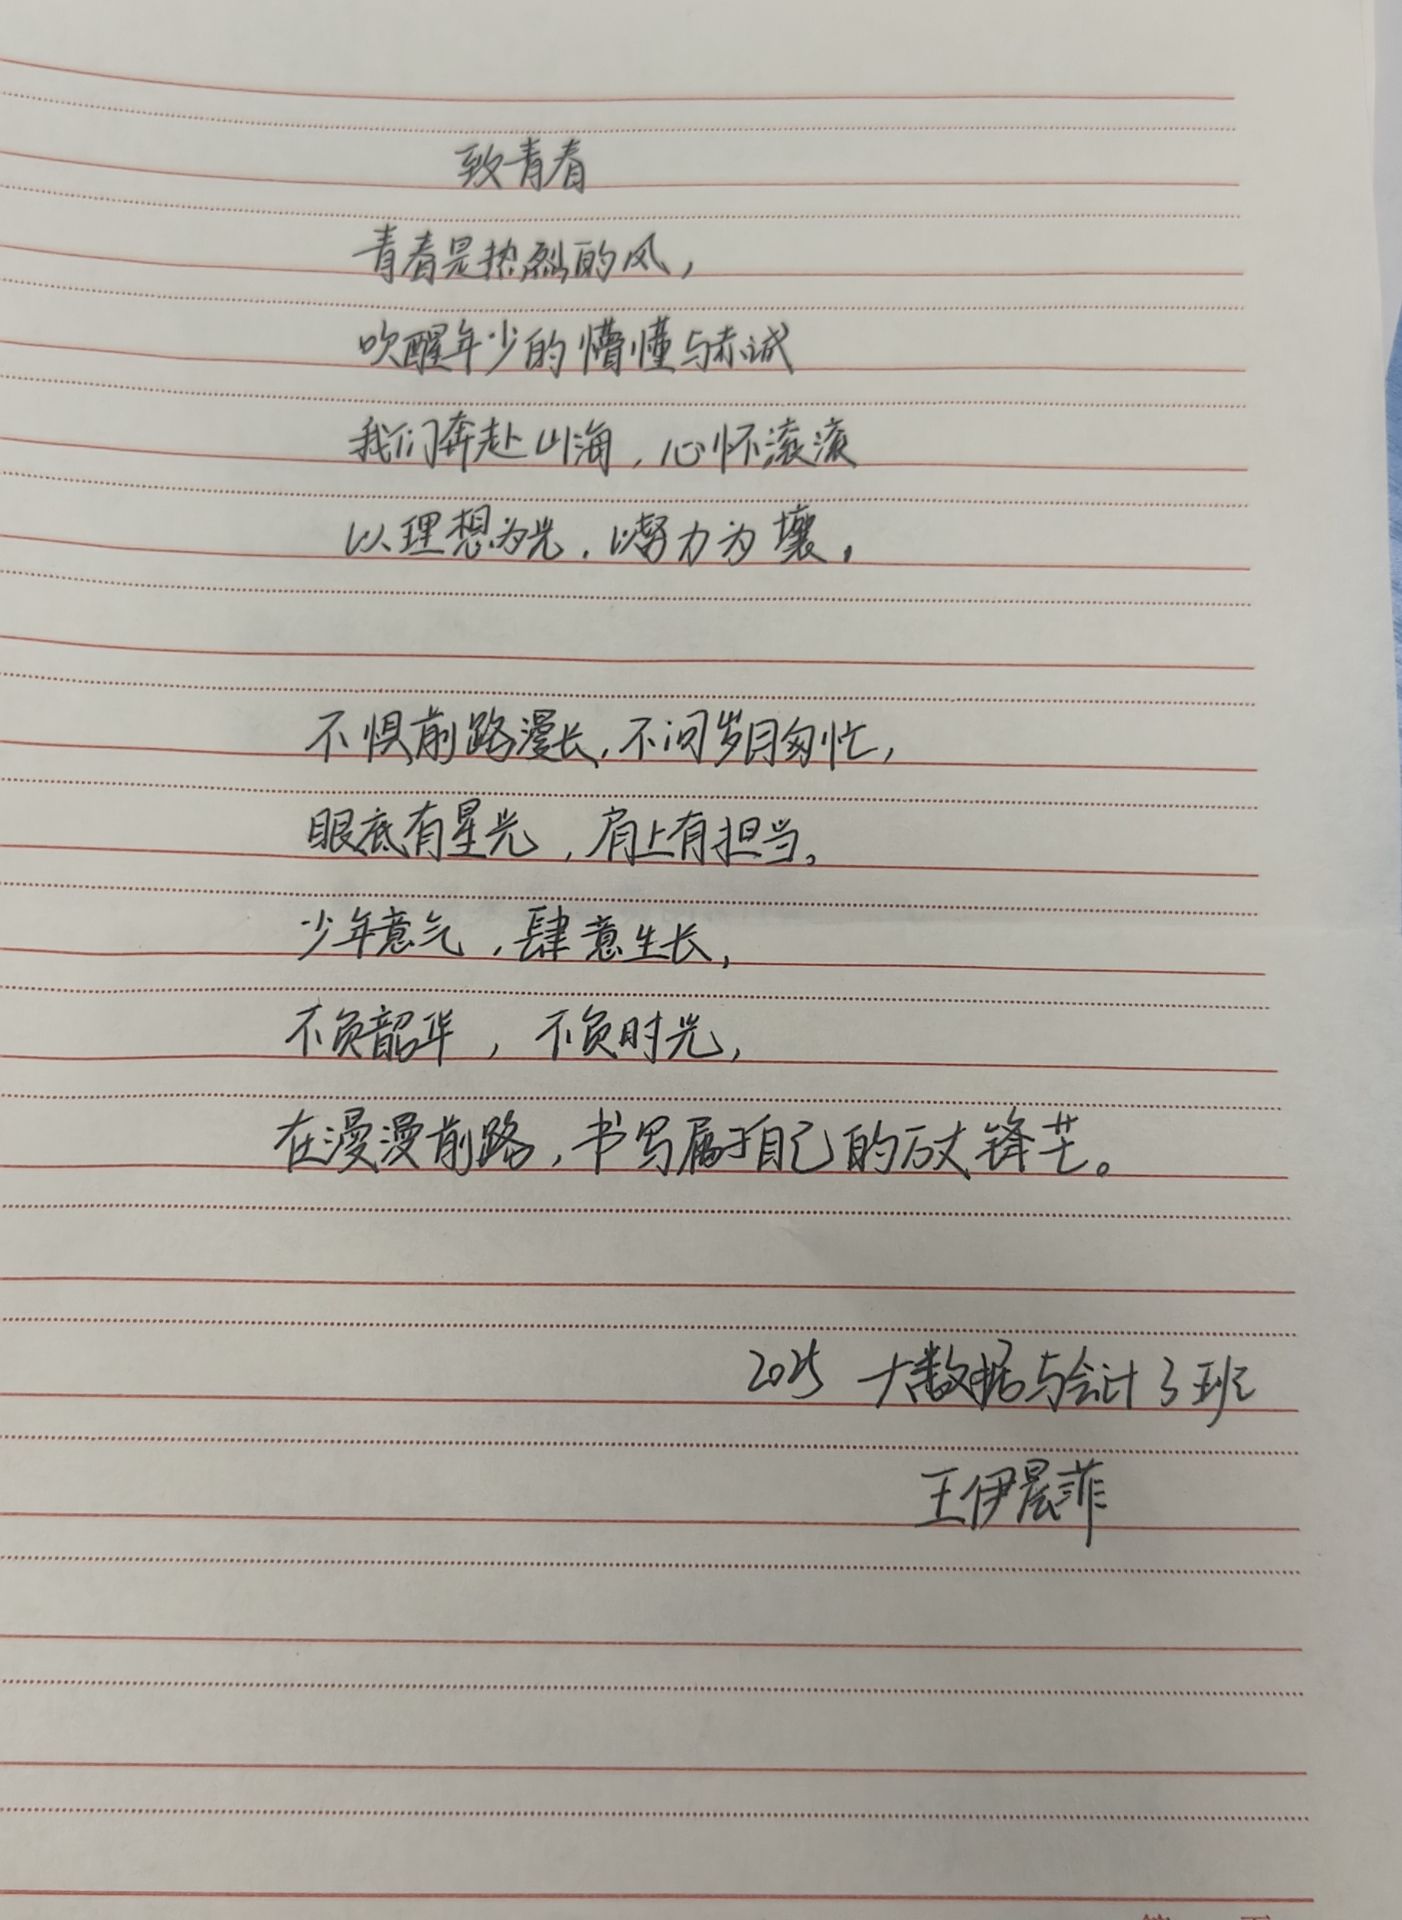 致青春
青春是热烈的风，
吹醒年少的懵懂与赤诚
我们奔赴山海，心怀滚滚
以理想为光，以努力为壤，
不惧前路漫长，不问岁月匆忙，
眼底有星光，肩上有担当。
少年意气，肆意生长，
不负韶华，不负时光，
在漫漫前路，书写属于自己的万丈锋芒。
2025 大数据与会计3班
王伊晨菲